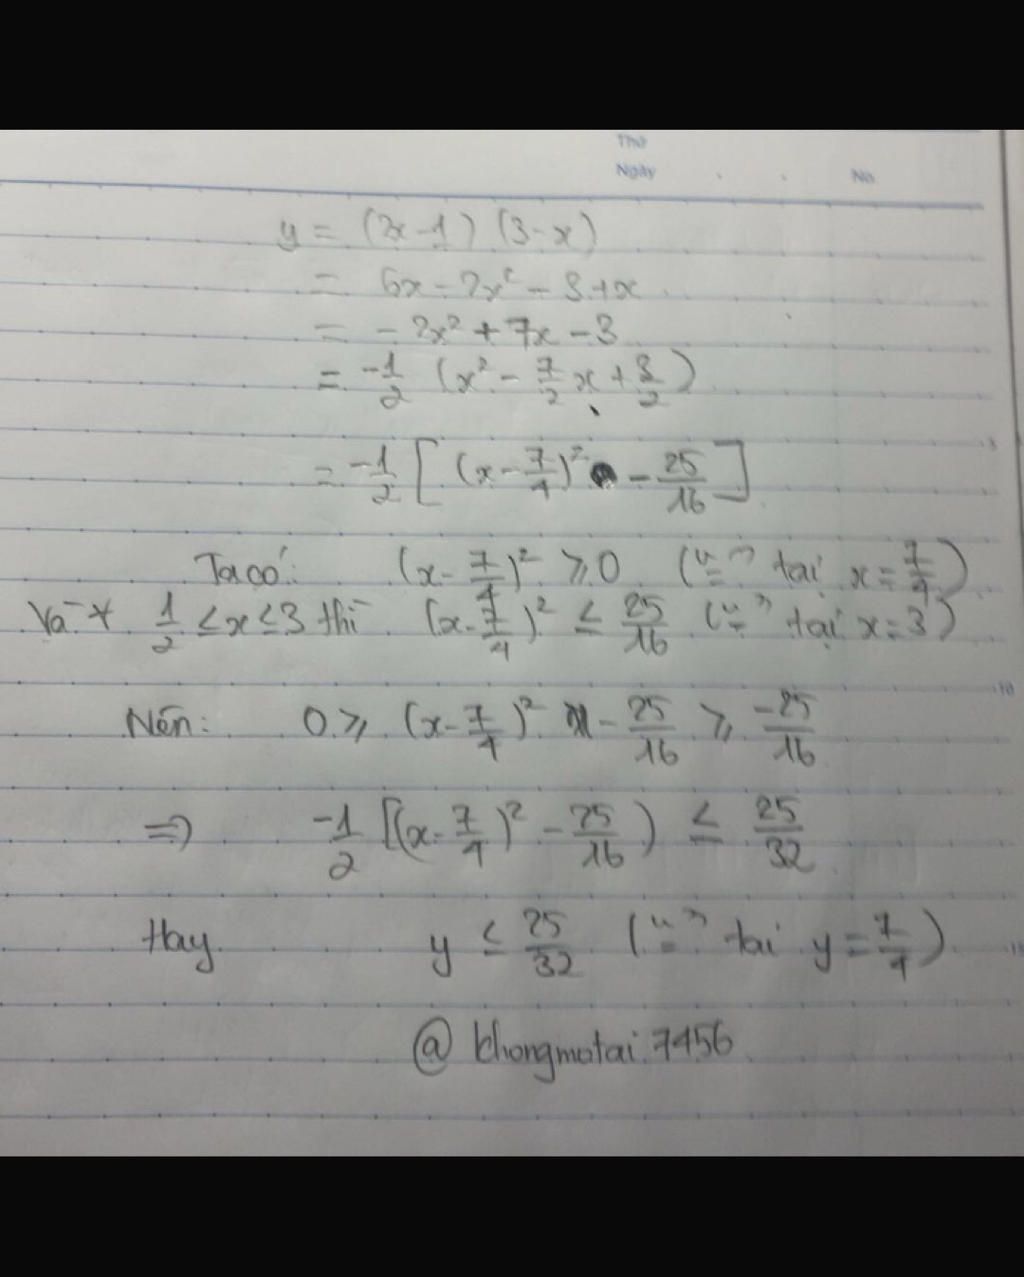 Thứ
Ngày . . No.
y = (2x-1) (3-x)
= 6x - 2x² - 3 + x
= - 2x² + 7x - 3
= -1/2 (x² - 7/2 x + 3/2)
= -1/2 [ (x - 7/4)² - 25/16 ]
Ta có: (x - 7/4)² ⩾ 0 ("=" tại x = 7/4)
Và ∀ 1/2 ≤ x ≤ 3 thì (x - 7/4)² ≤ 25/16 ("=" tại x = 3)
Nên: 0 ⩾ (x - 7/4)² - 25/16 ⩾ -25/16
=> -1/2 [(x - 7/4)² - 25/16) ≤ 25/32
Hay y ≤ 25/32 ("=" tại y = 7/4)
@ khongmotai.7456
5
10
15